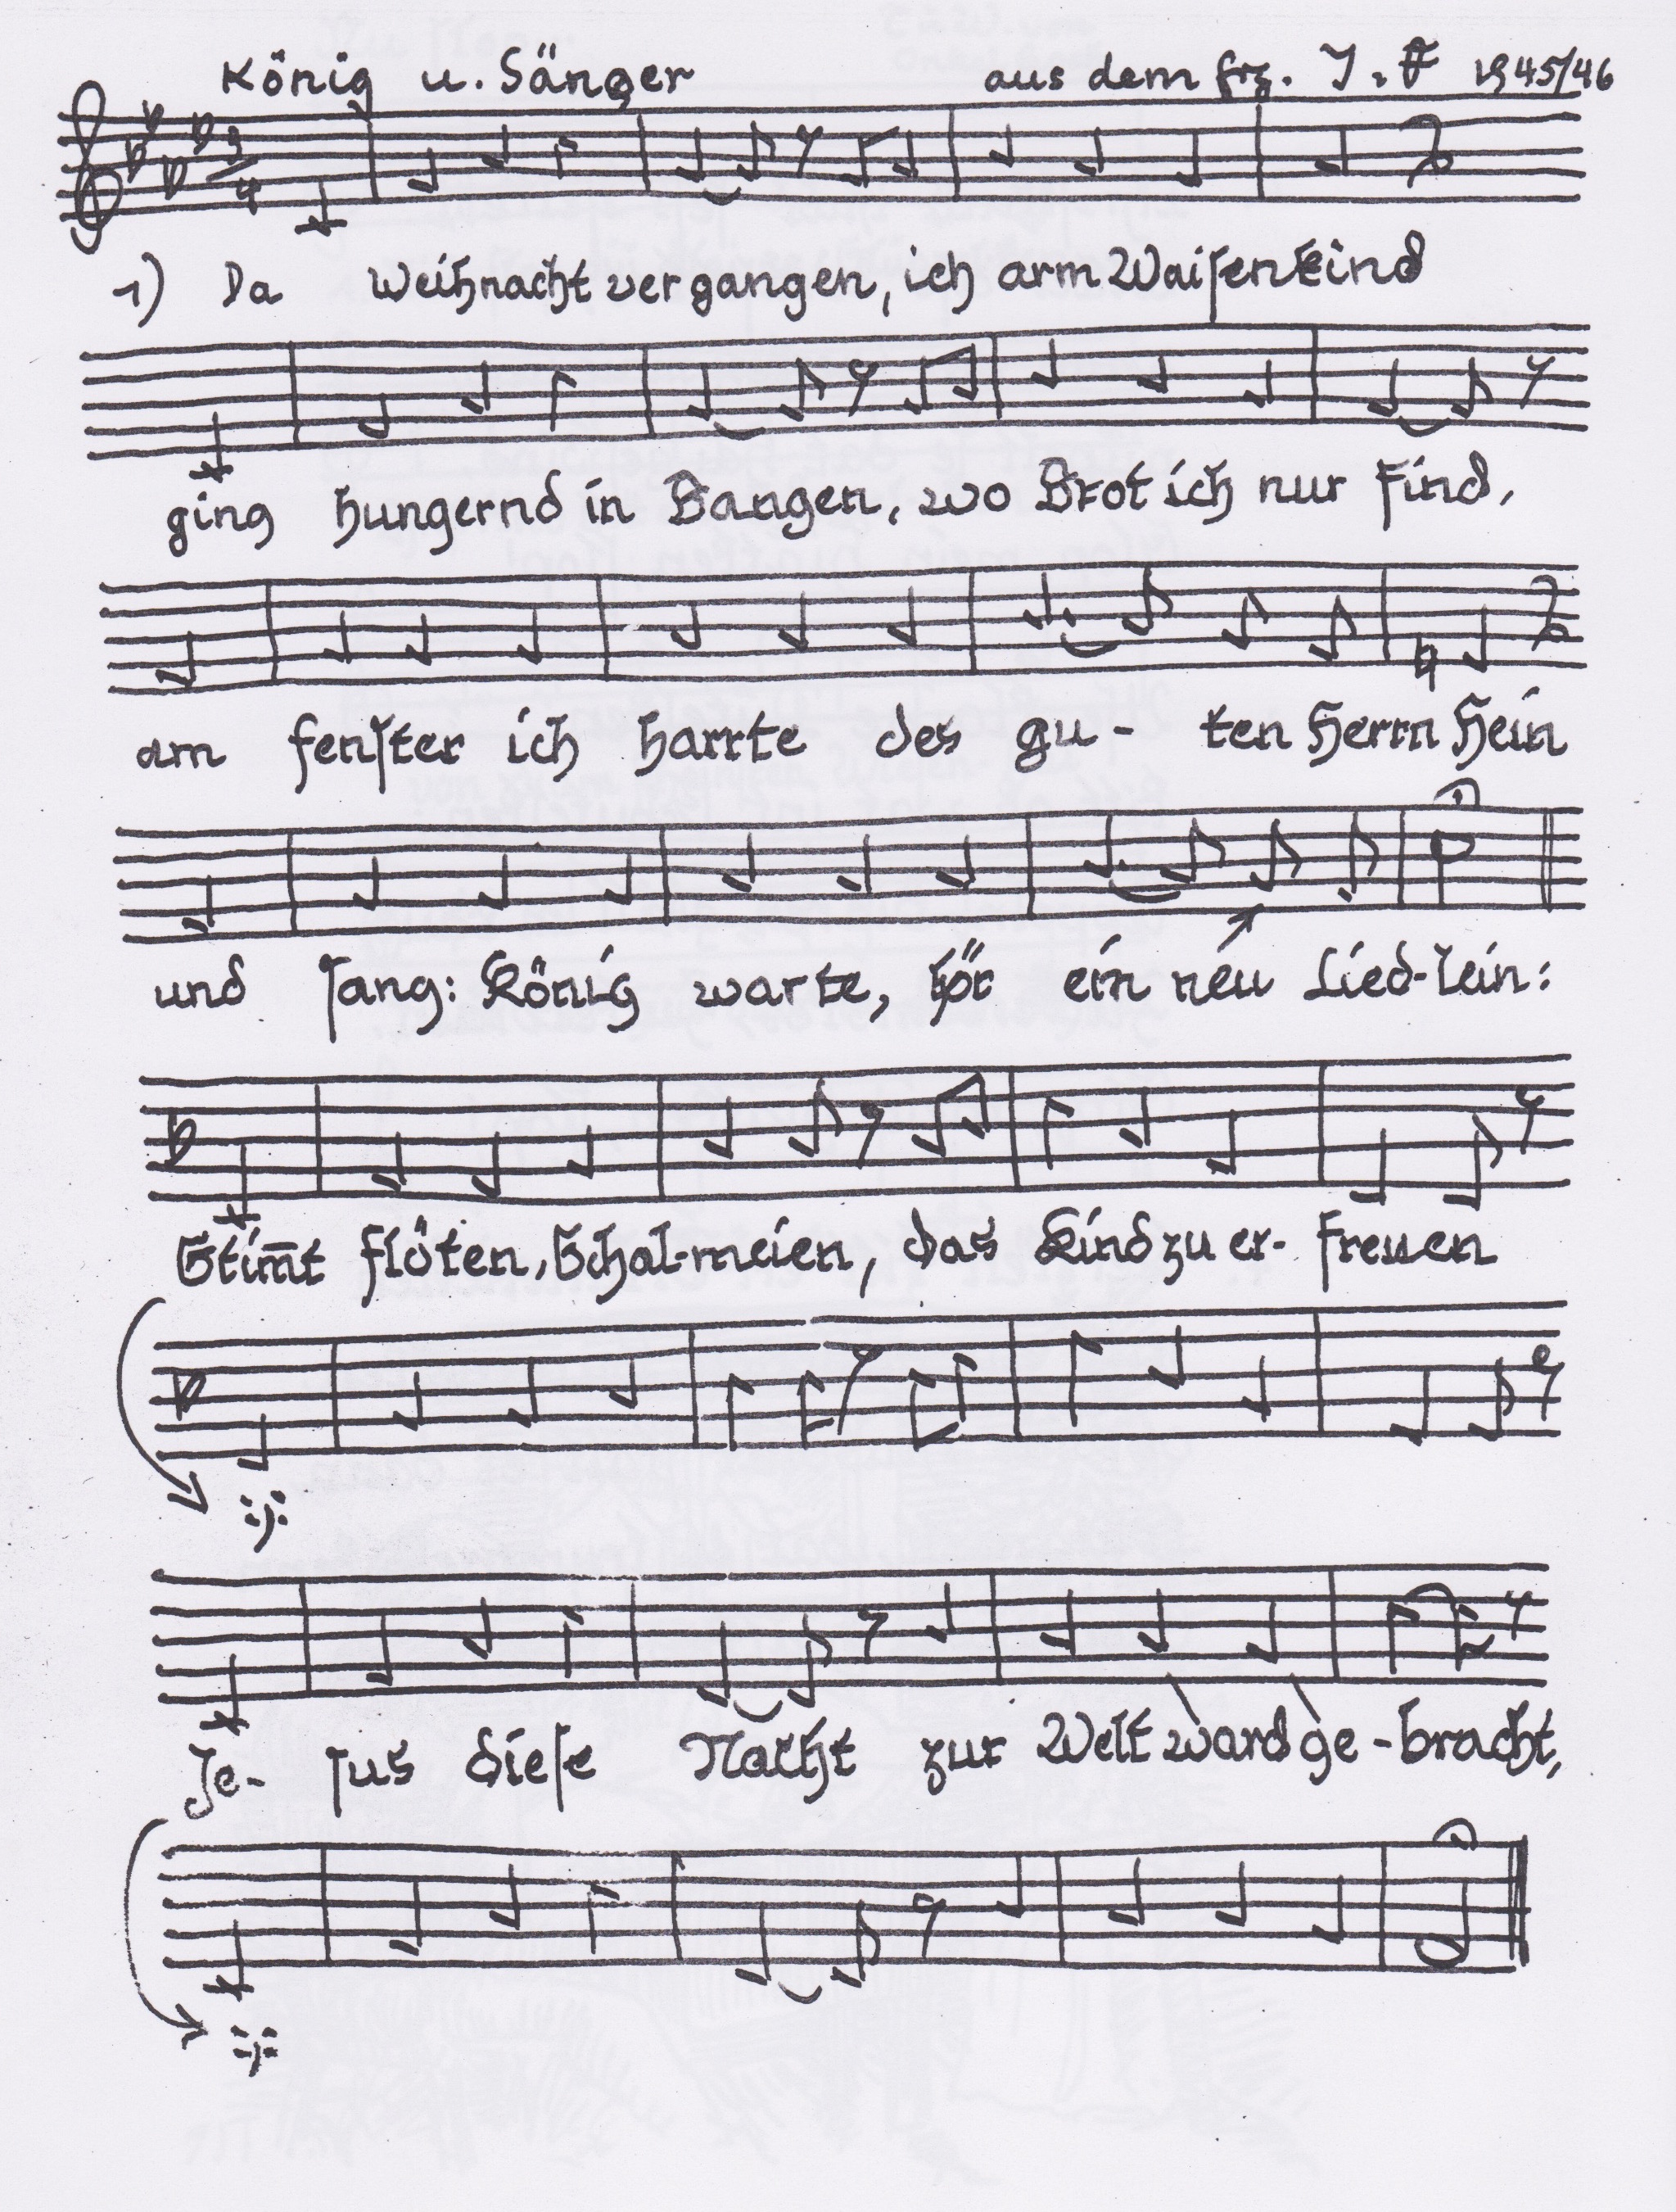 König u. Sänger aus dem frz. J. F 1945/46
3/4
1) Da Weihnacht vergangen, ich arm Waisenkind
ging hungernd in Bangen, wo Brot ich nur find,
am Fenster ich harrte des gu- ten Herrn Hein
und sang: König warte, hör ein neu Lied-lein:
Stim̄t Flöten, Schal-meien, das Kind zu er- freuen
Je- sus diese Nacht zur Welt ward ge-bracht,